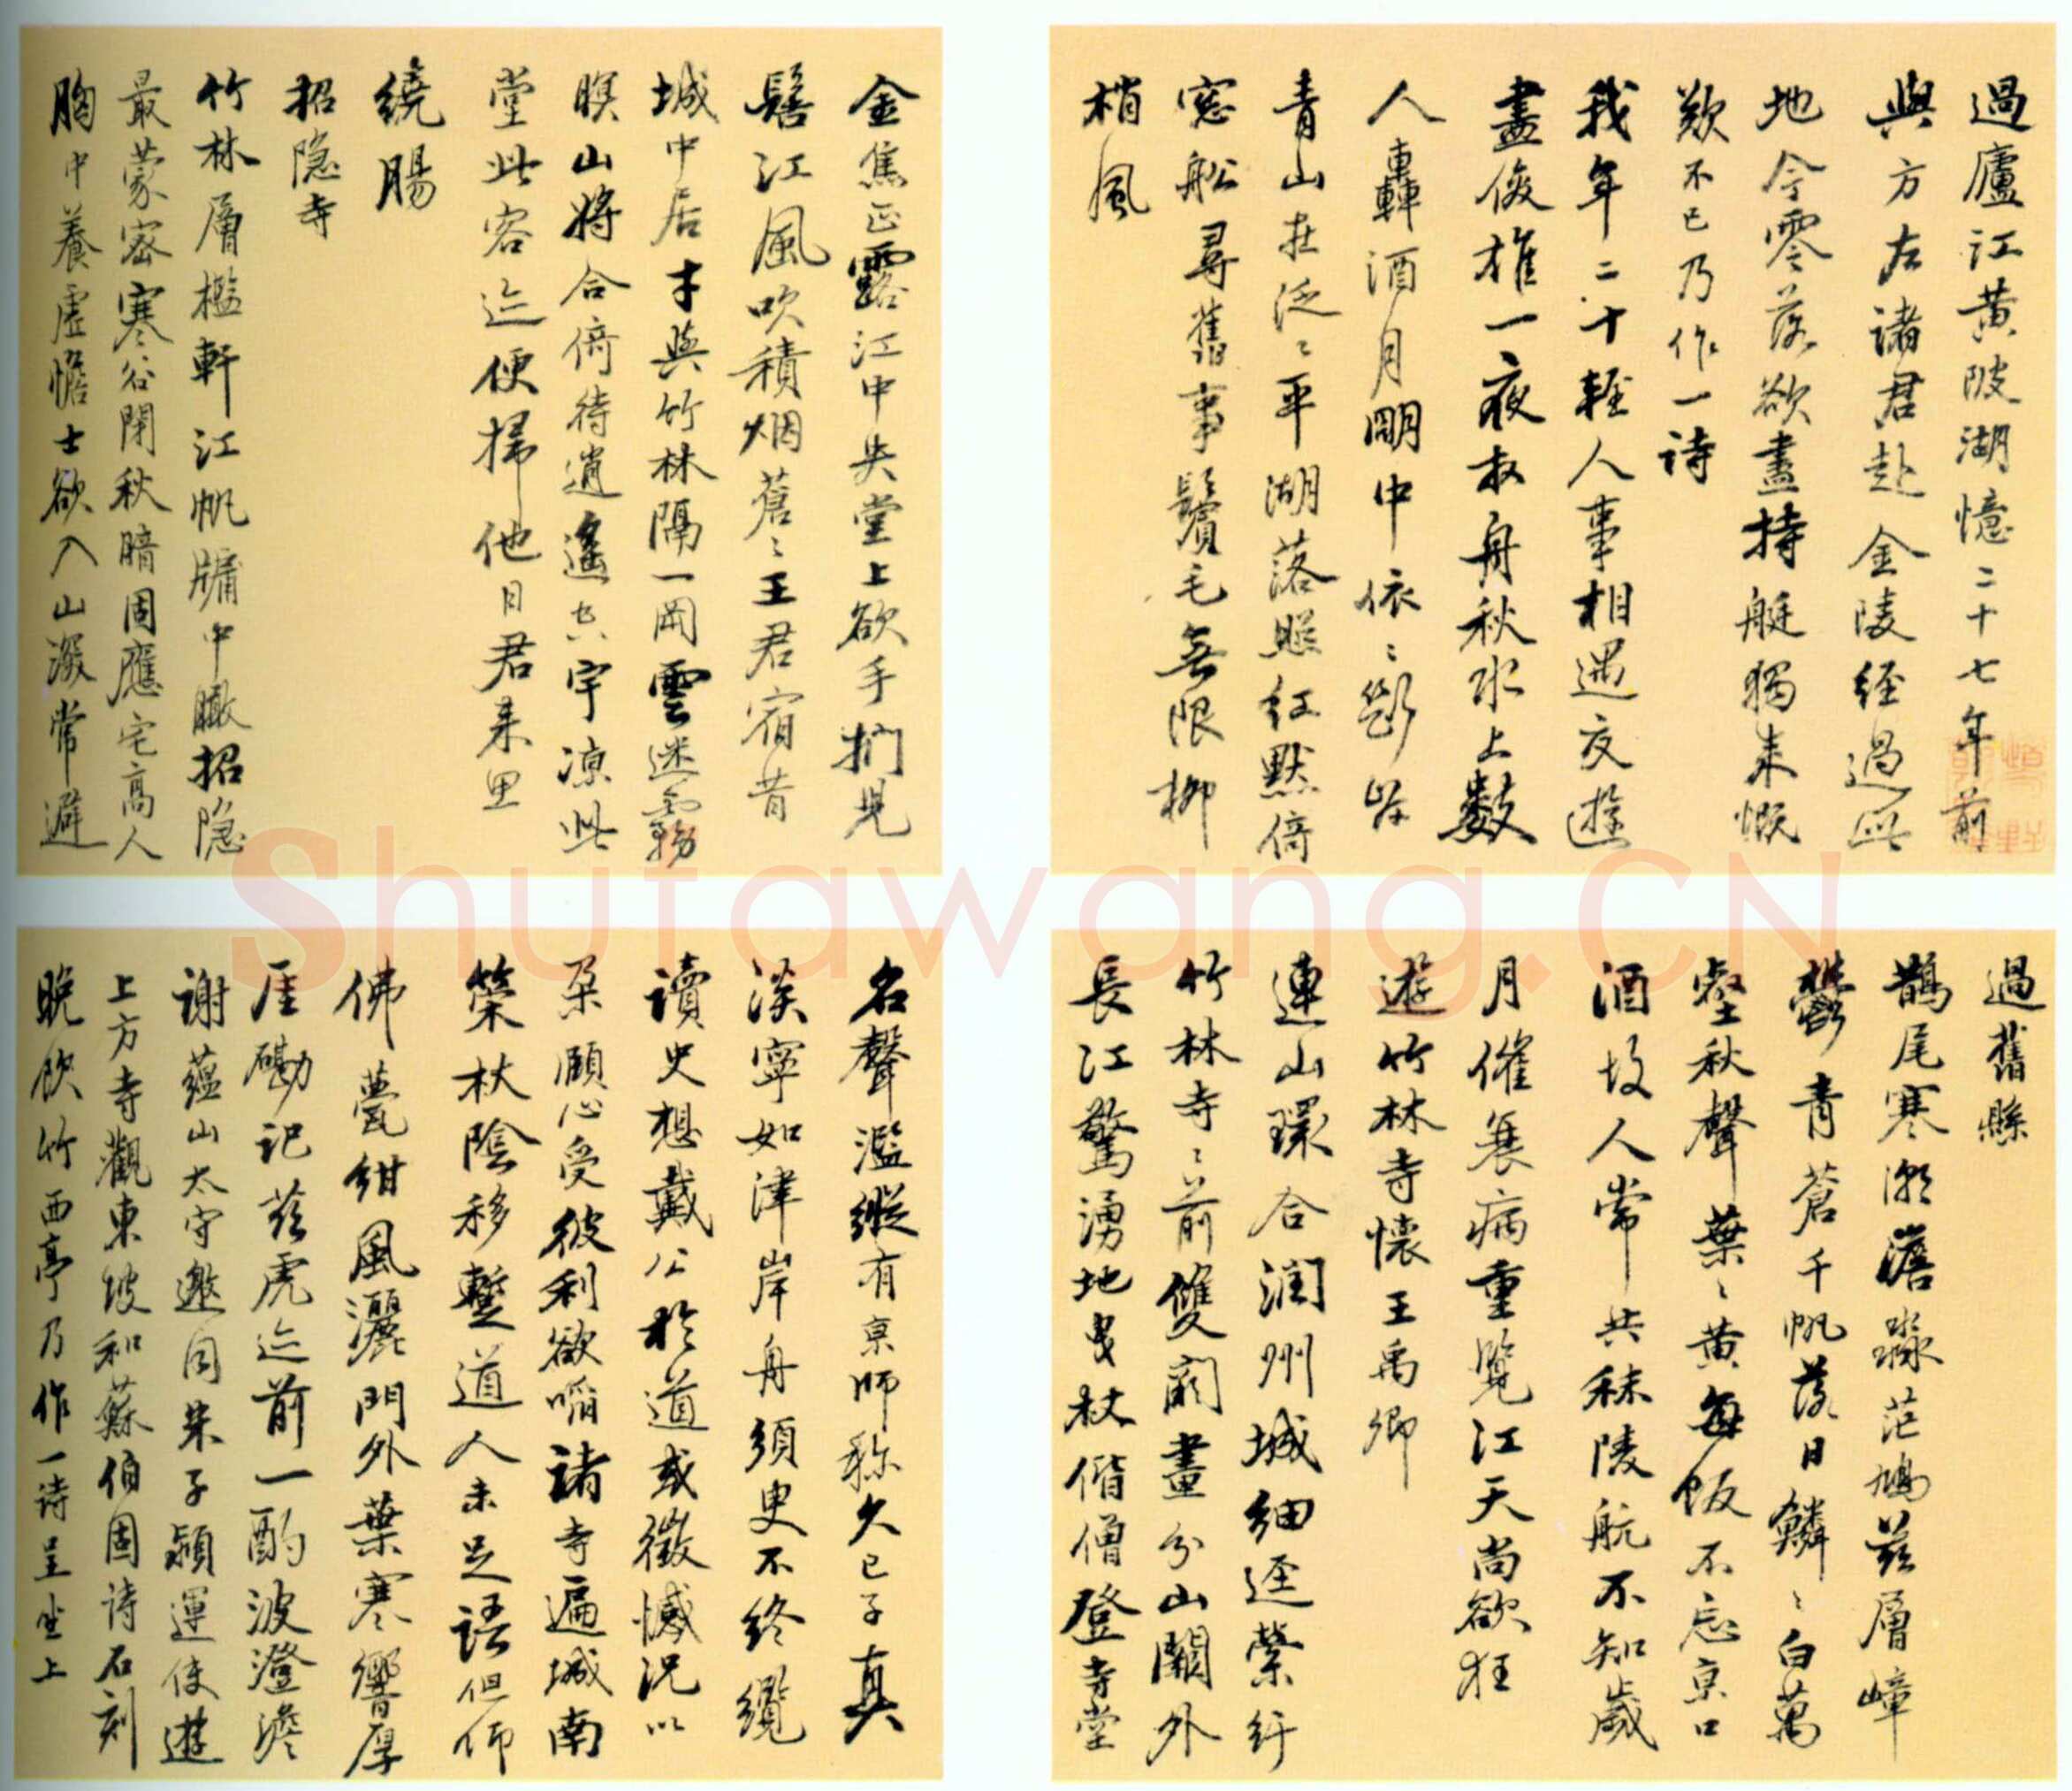 過廬江黃陂湖憶二十七年前
與方左諸君赴金陵經過此
地今零落欲盡持艇獨來慨
歎不已乃作一詩
我年二十輕人事相遇交遊
盡俊雄一夜放舟秋水上數
人轟酒月明中依〻斷岸
青山在泛〻平湖落照紅默倚
窓船尋舊事鬢毛無限柳
梢風
過舊縣
鵲尾寒潮澹淼茫鳩茲層嶂
鬱青蒼千帆落日鱗〻白萬
壑秋聲葉〻黃每飯不忘京口
酒故人常共秣陵航不知歲
月催衰病重覽江天尚欲狂
遊竹林寺懷王禹卿
連山環合潤州城細逕縈紆
竹林寺〻前雙闕畫分山關外
長江驚湧地曳杖偕僧登寺堂
金焦正露江中央堂上欲手捫兒
髻江風吹積烟蒼〻王君宿昔
城中居才與竹林隔一岡雲迷霧
暝山將合倚待逍遙云宇涼此
堂此客迹便掃他日君來里
繞腸
招隱寺
竹林層檻軒江帆牖中瞰招隱
最蒙密寒谷閉秋暗固應宅高人
胸中養虛憺士欲入山深常避
名聲濫縱有京師称久已子真
淡寧如津岸舟須臾不終纜
讀史想戴公於道或微憾況以
朵頤心受彼利欲啗諸寺遍城南
筞杖陰移蹔道人未足語但仰
佛甍紺風灑門外葉寒響厚
厓磡記茲虎迹前一酌波澄澹
謝蘊山太守邀同朱子潁運使遊
上方寺觀東坡和蘇伯固詩石刻
晚飲竹西亭乃作一詩呈坐上
Shufawang.CN